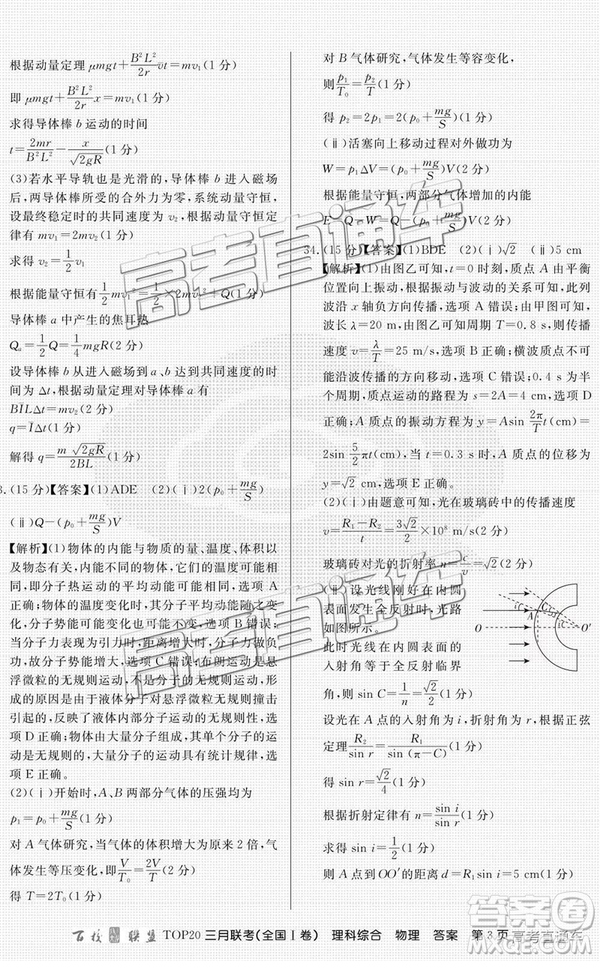 根据动量定理 μmgt+\frac{B²L²}{2r}vt=mv₁(1分)
即 μmgt+\frac{B²L²}{2r}x=mv₁(1分)
求得导体棒 b 运动的时间
t=\frac{2mr}{B²L²}-\frac{x}{\sqrt{2gR}}(1分)
(3)若水平导轨也是光滑的,导体棒 b 进入磁场
后,两导体棒所受的合外力为零,因此动量守恒,
设最终稳定时的共同速度为 v₂,根据动量守恒定
律有 mv₁=2mv₂(1分)
求得 v₂=\frac{1}{2}v₁
根据能量守恒有\frac{1}{2}mv₁²=\frac{1}{2}×2mv₂²+Q(1分)
导体棒 a 中产生的焦耳热
Qₐ=\frac{1}{2}Q=\frac{1}{4}mgR(1分)
设导体棒 b 从进入磁场,到两棒最终达到共同速
度,需要的时间为 t,根据动量定理对导体棒 a 有
B\bar{I}L·t=mv₂(1分)
q=\bar{I}t(1分)
解得 q=\frac{m\sqrt{2gR}}{2BL}(1分)
3.(15分)【答案】(1)ADE (2)(ⅰ)2(p₀+\frac{mg}{S})
(ⅱ)Q-(p₀+\frac{mg}{S})V
【解析】(1)物体的内能与物质的量、温度、体积以
及物态有关,因此物体的体积变化,内能可能不
变,由于分子热运动的平均动能可能不变,选项 A
正确;物体的温度变化时,其分子平均动能随之变
化,分子势能可能变化也可能不变,选项 B 错误;
当分子力表现为引力时,距离增大,分子力做负
功,分子势能增大,选项 C 错误;布朗运动是液体中
悬浮微粒的无规则运动,不是分子的运动,但它形
成的原因是由于液体内部分子运动的撞击引起
的,反映了液体内分子的无规则运动,选项 D 正
确;热现象的微观理论认为,各个分子的运动都是
无规则的、带有偶然性的,但大量分子的运动都有
一定的规律,大量分子组成的系统具有统计规律,
选项 E 正确。
(2)(ⅰ)开始时,A、B 两部分气体的压强均为
p₁=p₀+\frac{mg}{S}(1分)
对 A 气体研究,气体的体积变为原来 2 倍,A 气
体发生等压变化,则\frac{V}{T₀}=\frac{2V}{T}(2分)
得 T=2T₀(1分)
对 B 气体研究,气体发生等容变化
则\frac{p₁}{T₀}=\frac{p₂}{T}(1分)
得 p₂=2p₁=2(p₀+\frac{mg}{S})(1分)
(ⅱ)活塞向上移动过程对外做功为
W=p₁ΔV=(p₀+\frac{mg}{S})V(2分)
根据能量守恒,两部分气体增加的内能
E=Q-W=Q-(p₀+\frac{mg}{S})V(2分)
34.(15分)【答案】(1)BDE (2)(ⅰ)√2 (ⅱ)5 cm
【解析】(1)由图乙可知,t=0 时刻,质点 A 由平衡
位置向上振动,根据振动与波动的关系可知,此列
波沿 x 轴负方向传播,选项 A 错误;由甲图可知,
波长 λ=20 m,由乙图可知,T=0.8 s,则波传播
速度 v=\frac{λ}{T}=25 m/s,选项 B 正确;横波质点不
可能沿波传播的方向移动,选项 C 错误;0.4 s 为
半个周期,质点 A 运动的路程为 s=2A=4 cm,
选项 D 正确;A 质点的振动方程为 y=Asin\frac{2π}{T}t=
2sin\frac{5}{2}πt (cm),当 t=0.3 s 时,A 质点的位移为
√2 cm,选项 E 正确。
(2)(ⅰ)由题意可知,光在玻璃砖中传播的速度为
v=\frac{R₁-R₂}{t}=\frac{3√2}{2}×10⁸ m/s(2分)
玻璃砖对光的折射率为 n=\frac{c}{v}=√2(2分)
(ⅱ)设光线刚好在内圆
表面发生全反射时,光路
如图所示。
此时光线在内圆表面的
入射角等于全反射临界
角,则 sin C=\frac{1}{n}=\frac{√2}{2}(1分)
O
A
O′
设光在 A 点的入射角为 i,折射角为 r,根据正弦
定理\frac{R₂}{sin r}=\frac{R₁}{sin C}(1分)
得 sin r=\frac{√2}{4}(1分)
根据折射定律有 n=\frac{sin i}{sin r}(1分)
求得 sin i=\frac{1}{2}(1分)
则 A 点到 OO′的距离 d=R₁sin i=5 cm(1分)
百校联盟 TOP20 三月联考(全国Ⅰ卷) 理科综合 物理 答案 第 3 页
高考直通车
高考直通车
高考直通车